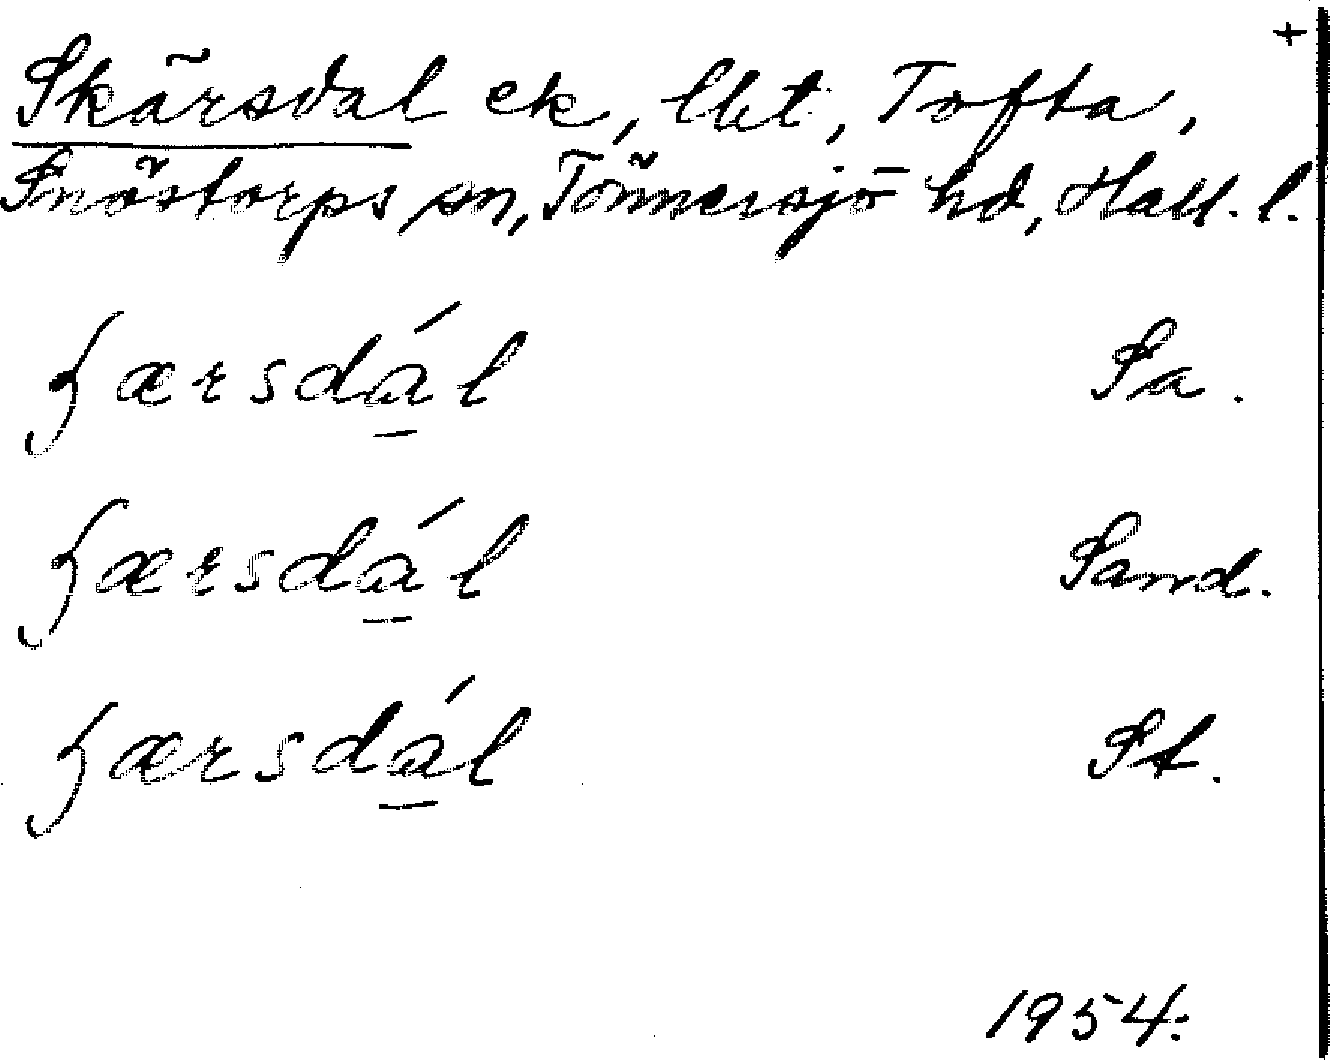 +
Skärsdal ck, lht, Tofta,
Snöstorps sn, Tönnersjö hd, Hall. l.
ʂærsdál Sa.
ʂærsdál Sand.
ʂærsdál St.
1954.